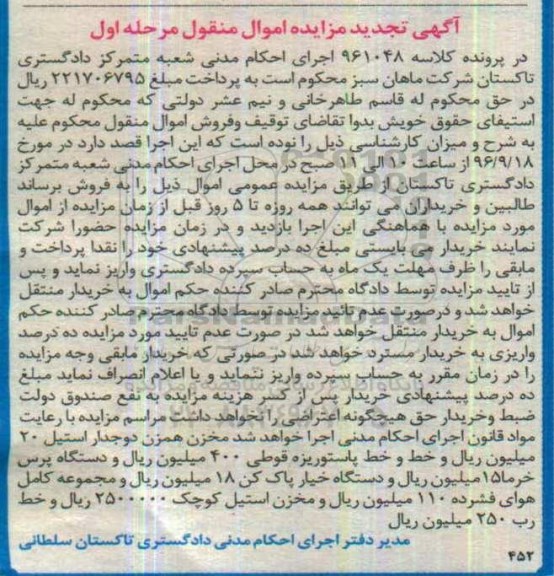 آگهی تجدید مزایده اموال منقول مرحله اول
در پرونده کلاسه ۹۶۱۰۴۸ اجرای احکام مدنی شعبه متمرکز دادگستری
تاکستان شرکت ماهان سبز محکوم است به پرداخت مبلغ ۲۲۱۷۰۶۷۹۵ ریال
در حق محکوم له قاسم طاهرخانی و نیم عشر دولتی که محکوم له جهت
استیفای حقوق خویش بدوا تقاضای توقیف وفروش اموال منقول محکوم علیه
به شرح و میزان کارشناسی ذیل را نوده است که این اجرا قصد دارد در مورخ
۹۶/۹/۱۸ از ساعت ۱۰ الی ۱۱ صبح در محل اجرای احکام مدنی شعبه متمرکز
دادگستری تاکستان از طریق مزایده عمومی اموال ذیل را به فروش برساند
طالبین و خریداران می توانند همه روزه تا ۵ روز قبل از زمان مزایده از اموال
مورد مزایده با هماهنگی این اجرا بازدید و در زمان مزایده حضورا شرکت
نمایند خریدار می بایستی مبلغ ده درصد پیشنهادی خود را نقدا پرداخت و
مابقی را ظرف مهلت یک ماه به حساب سپرده دادگستری واریز نماید و پس
از تایید مزایده توسط دادگاه محترم صادر کننده حکم اموال به خریدار منتقل
خواهد شد و درصورت عدم تائید مزایده توسط دادگاه محترم صادر کننده حکم
اموال به خریدار منتقل خواهد شد در صورت عدم تایید مورد مزایده ده درصد
واریزی به خریدار مسترد خواهد شد در صورتی که خریدار مابقی وجه مزایده
را در زمان مقرر به حساب سپرده واریز ننماید و یا اعلام انصراف نماید مبلغ
ده درصد پیشنهادی خریدار پس از کسر هزینه مزایده به نفع صندوق دولت
ضبط وخریدار حق هیچگونه اعتراضی را نخواهد داشت مراسم مزایده با رعایت
مواد قانون اجرای احکام مدنی اجرا خواهد شد مخزن همزن دوجدار استیل ۲۰
میلیون ریال و خط و خط پاستوریزه قوطی ۴۰۰ میلیون ریال و دستگاه پرس
خرما۱۵میلیون ریال و دستگاه خیار پاک کن ۱۸ میلیون ریال و مجموعه کامل
هوای فشرده ۱۱۰ میلیون ریال و مخزن استیل کوچک ۲۵۰۰۰۰۰ ریال و خط
رب ۲۵۰ میلیون ریال
مدیر دفتر اجرای احکام مدنی دادگستری تاکستان سلطانی
۴۵۲